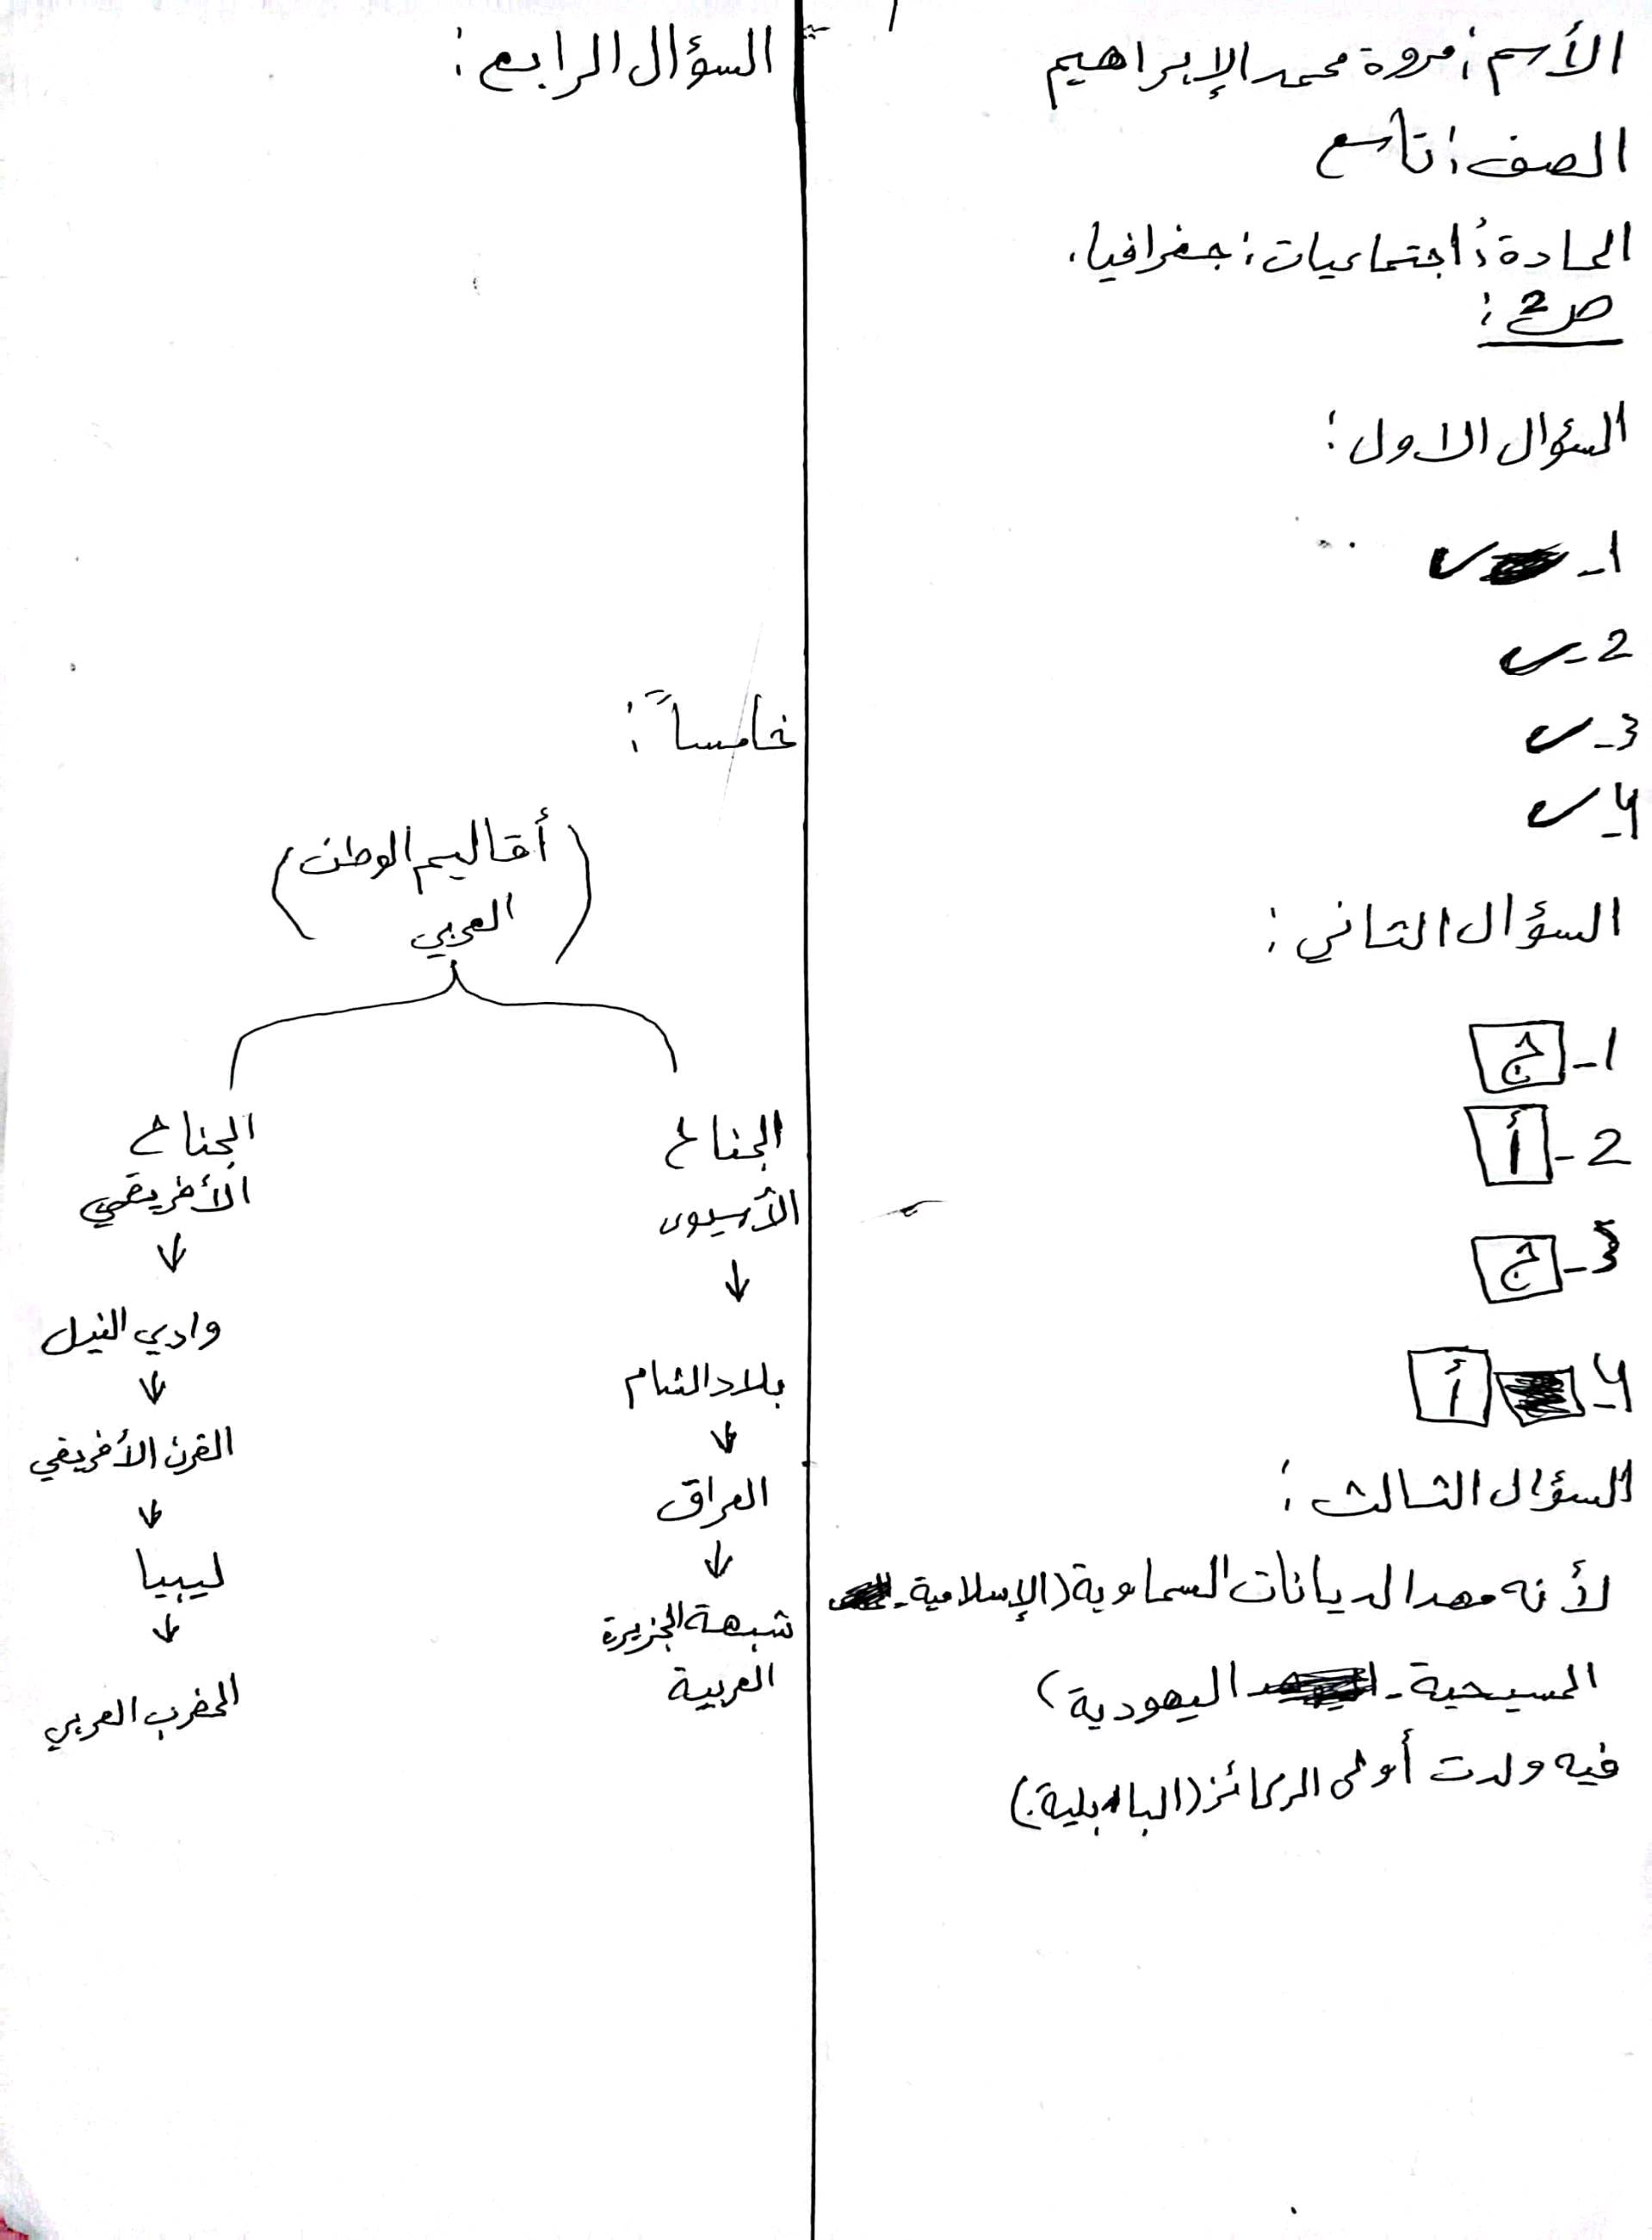 الأسم : مروة محمد الإبراهيم
الصف : تاسع
المادة : اجتماعيات : جغرافيا .
ص2 :
السؤال الاول :
1- ✓
2- ✓
3- ✓
4- ✓
السؤال الثاني :
1- ج
2- أ
3- ج
4- أ
السؤال الثالث :
لأنه مهد الديانات السماوية (الإسلامية -
المسيحية - اليهودية)
فيه ولدت أولى الركائز (البابلية.)
السؤال الرابع :
خامساً :
(أقاليم الوطن
العربي)
الجناح
الأسيوي
↓
بلاد الشام
↓
العراق
↓
شبهة الجزيرة
العربية
الجناح
الأفريقي
↓
وادي النيل
↓
القرن الأفريقي
↓
ليبيا
↓
المغرب العربي